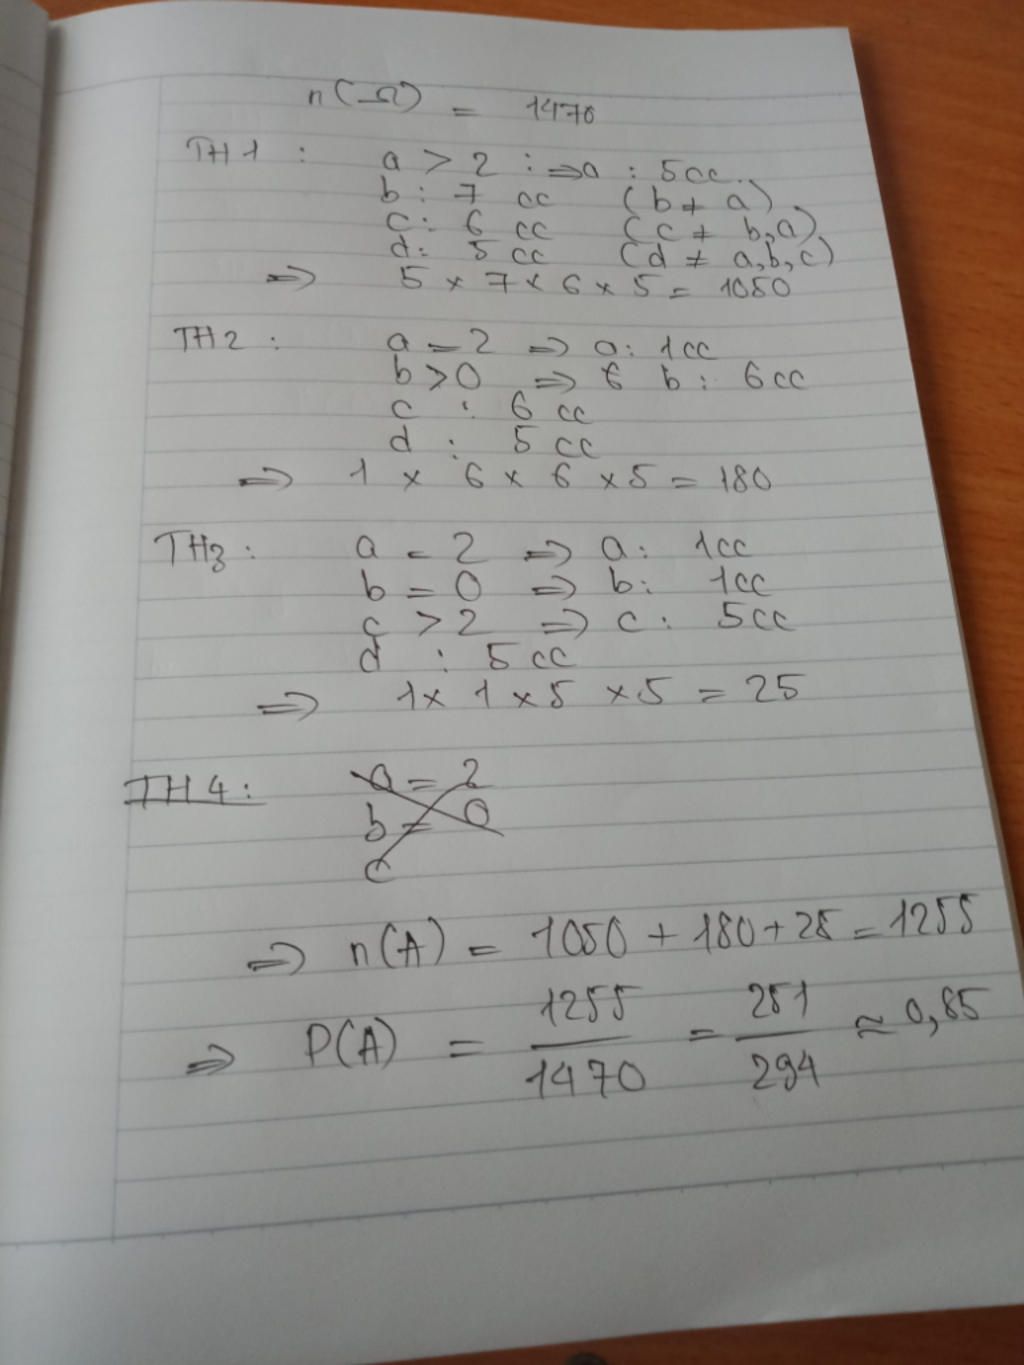 n(Ω) = 1470
TH1 : a > 2 : ⇒ a : 5cc
b : 7 cc (b ≠ a)
c : 6 cc (c ≠ b,a)
d : 5 cc (d ≠ a,b,c)
⇒ 5 × 7 × 6 × 5 = 1050
TH2 : a = 2 ⇒ a : 1cc
b > 0 ⇒ 6 b : 6cc
c : 6 cc
d : 5 cc
⇒ 1 × 6 × 6 × 5 = 180
TH3 : a = 2 ⇒ a : 1cc
b = 0 ⇒ b : 1cc
c > 2 ⇒ c : 5cc
d : 5 cc
⇒ 1 × 1 × 5 × 5 = 25
TH4 : a = 2
b = 0
c
⇒ n(A) = 1050 + 180 + 25 = 1255
⇒ P(A) = 1255/1470 = 251/294 ≈ 0,85